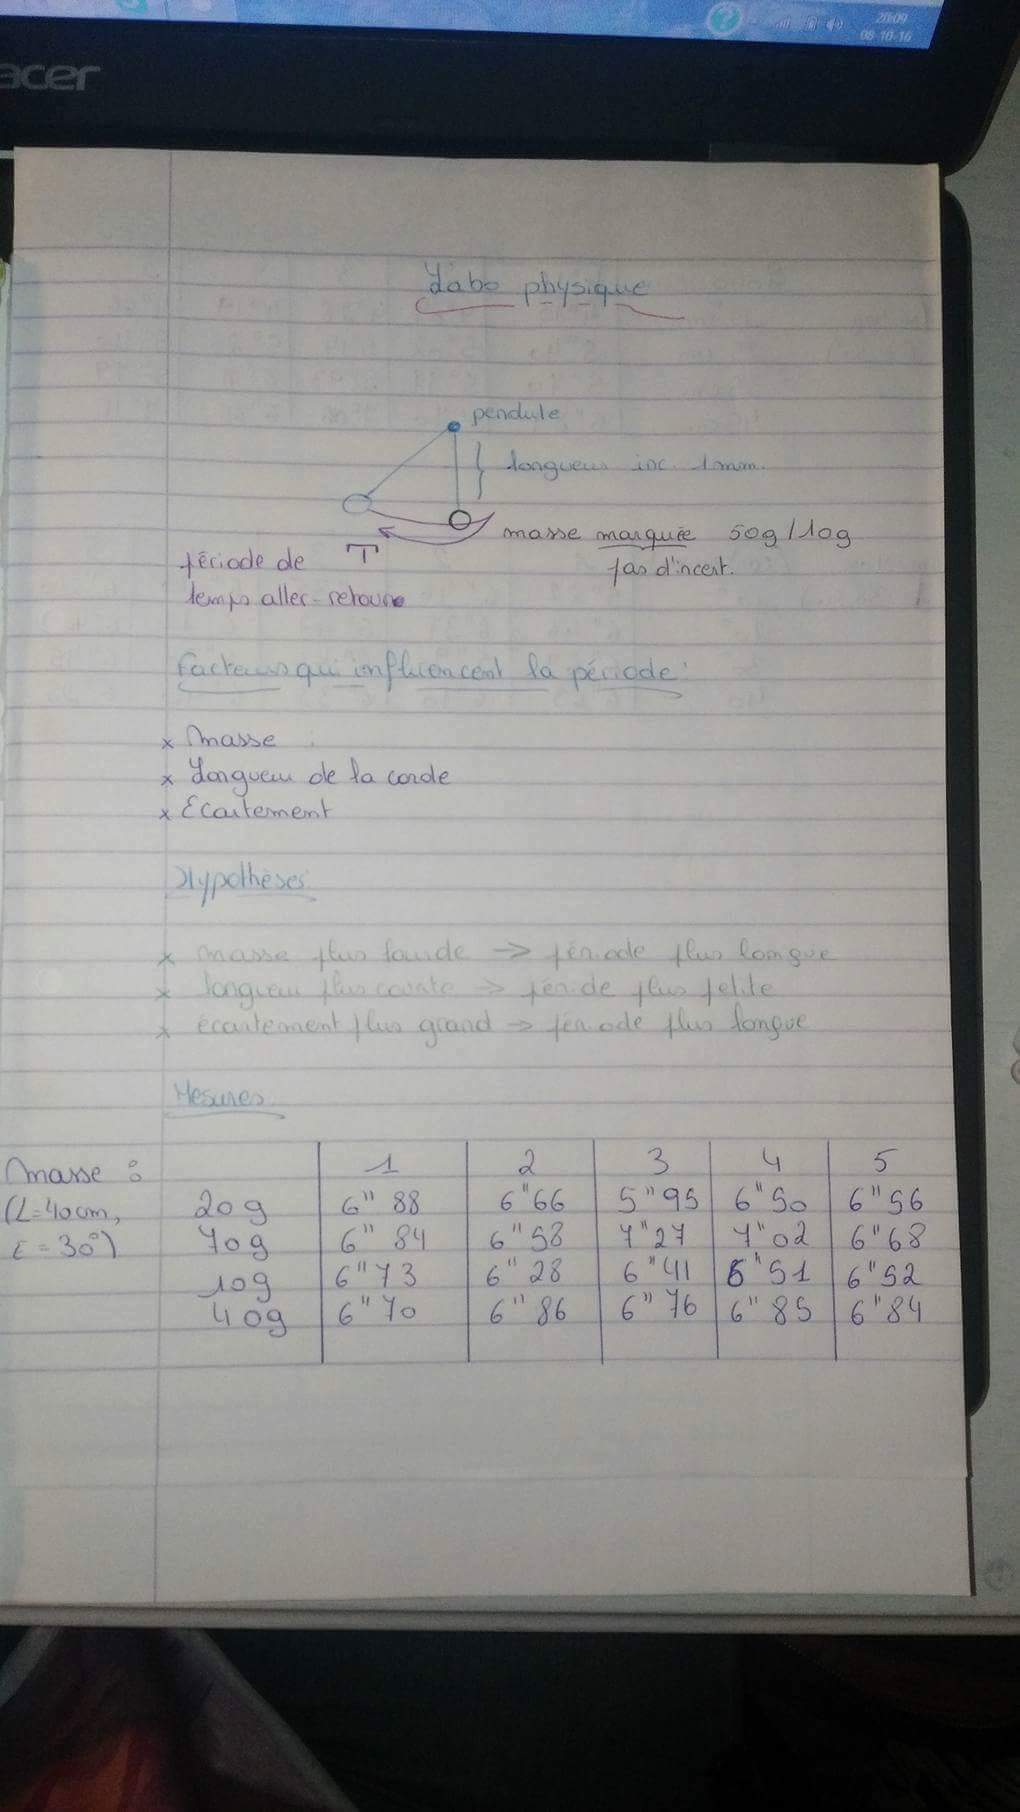 20:09
08-10-16
acer
Labo physique
pendule
longueur inc. 1mm.
masse marquée 50g/10g
pas d'incert.
T
période de
temps aller-retour
Facteurs qui influencent la période:
x Masse
x Longueur de la corde
x Ecartement
Hypothèses
x masse plus lourde → période plus longue
x longueur plus courte → péride plus petite
x écartement plus grand → période plus longue
Mesures
Masse : 1 2 3 4 5
(L=40cm, 20g 6"88 6"66 5"95 6"50 6"56
E=30°) 70g 6"84 6"58 7"27 7"02 6"68
10g 6"73 6"28 6"41 6"51 6"52
40g 6"70 6"86 6"76 6"85 6"84